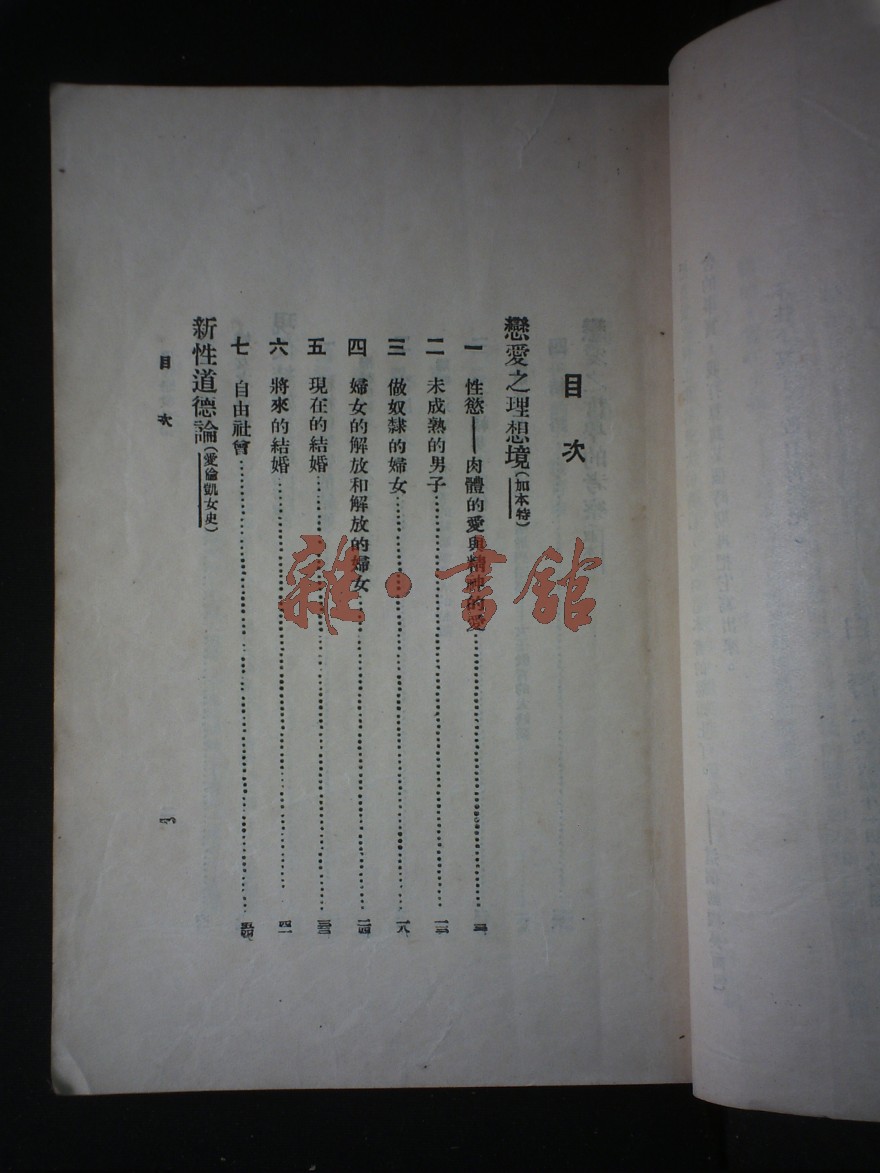 目次
戀愛之理想境（加本特）
一 性慾——肉體的愛與精神的愛
二 未成熟的男子……一三
三 做奴隸的婦女……一八
四 婦女的解放和解放的婦女……二四
五 現在的結婚……三三
六 將來的結婚……四一
七 自由社會……五四
新性道德論（愛倫凱女史）
目次
一
雜·書館